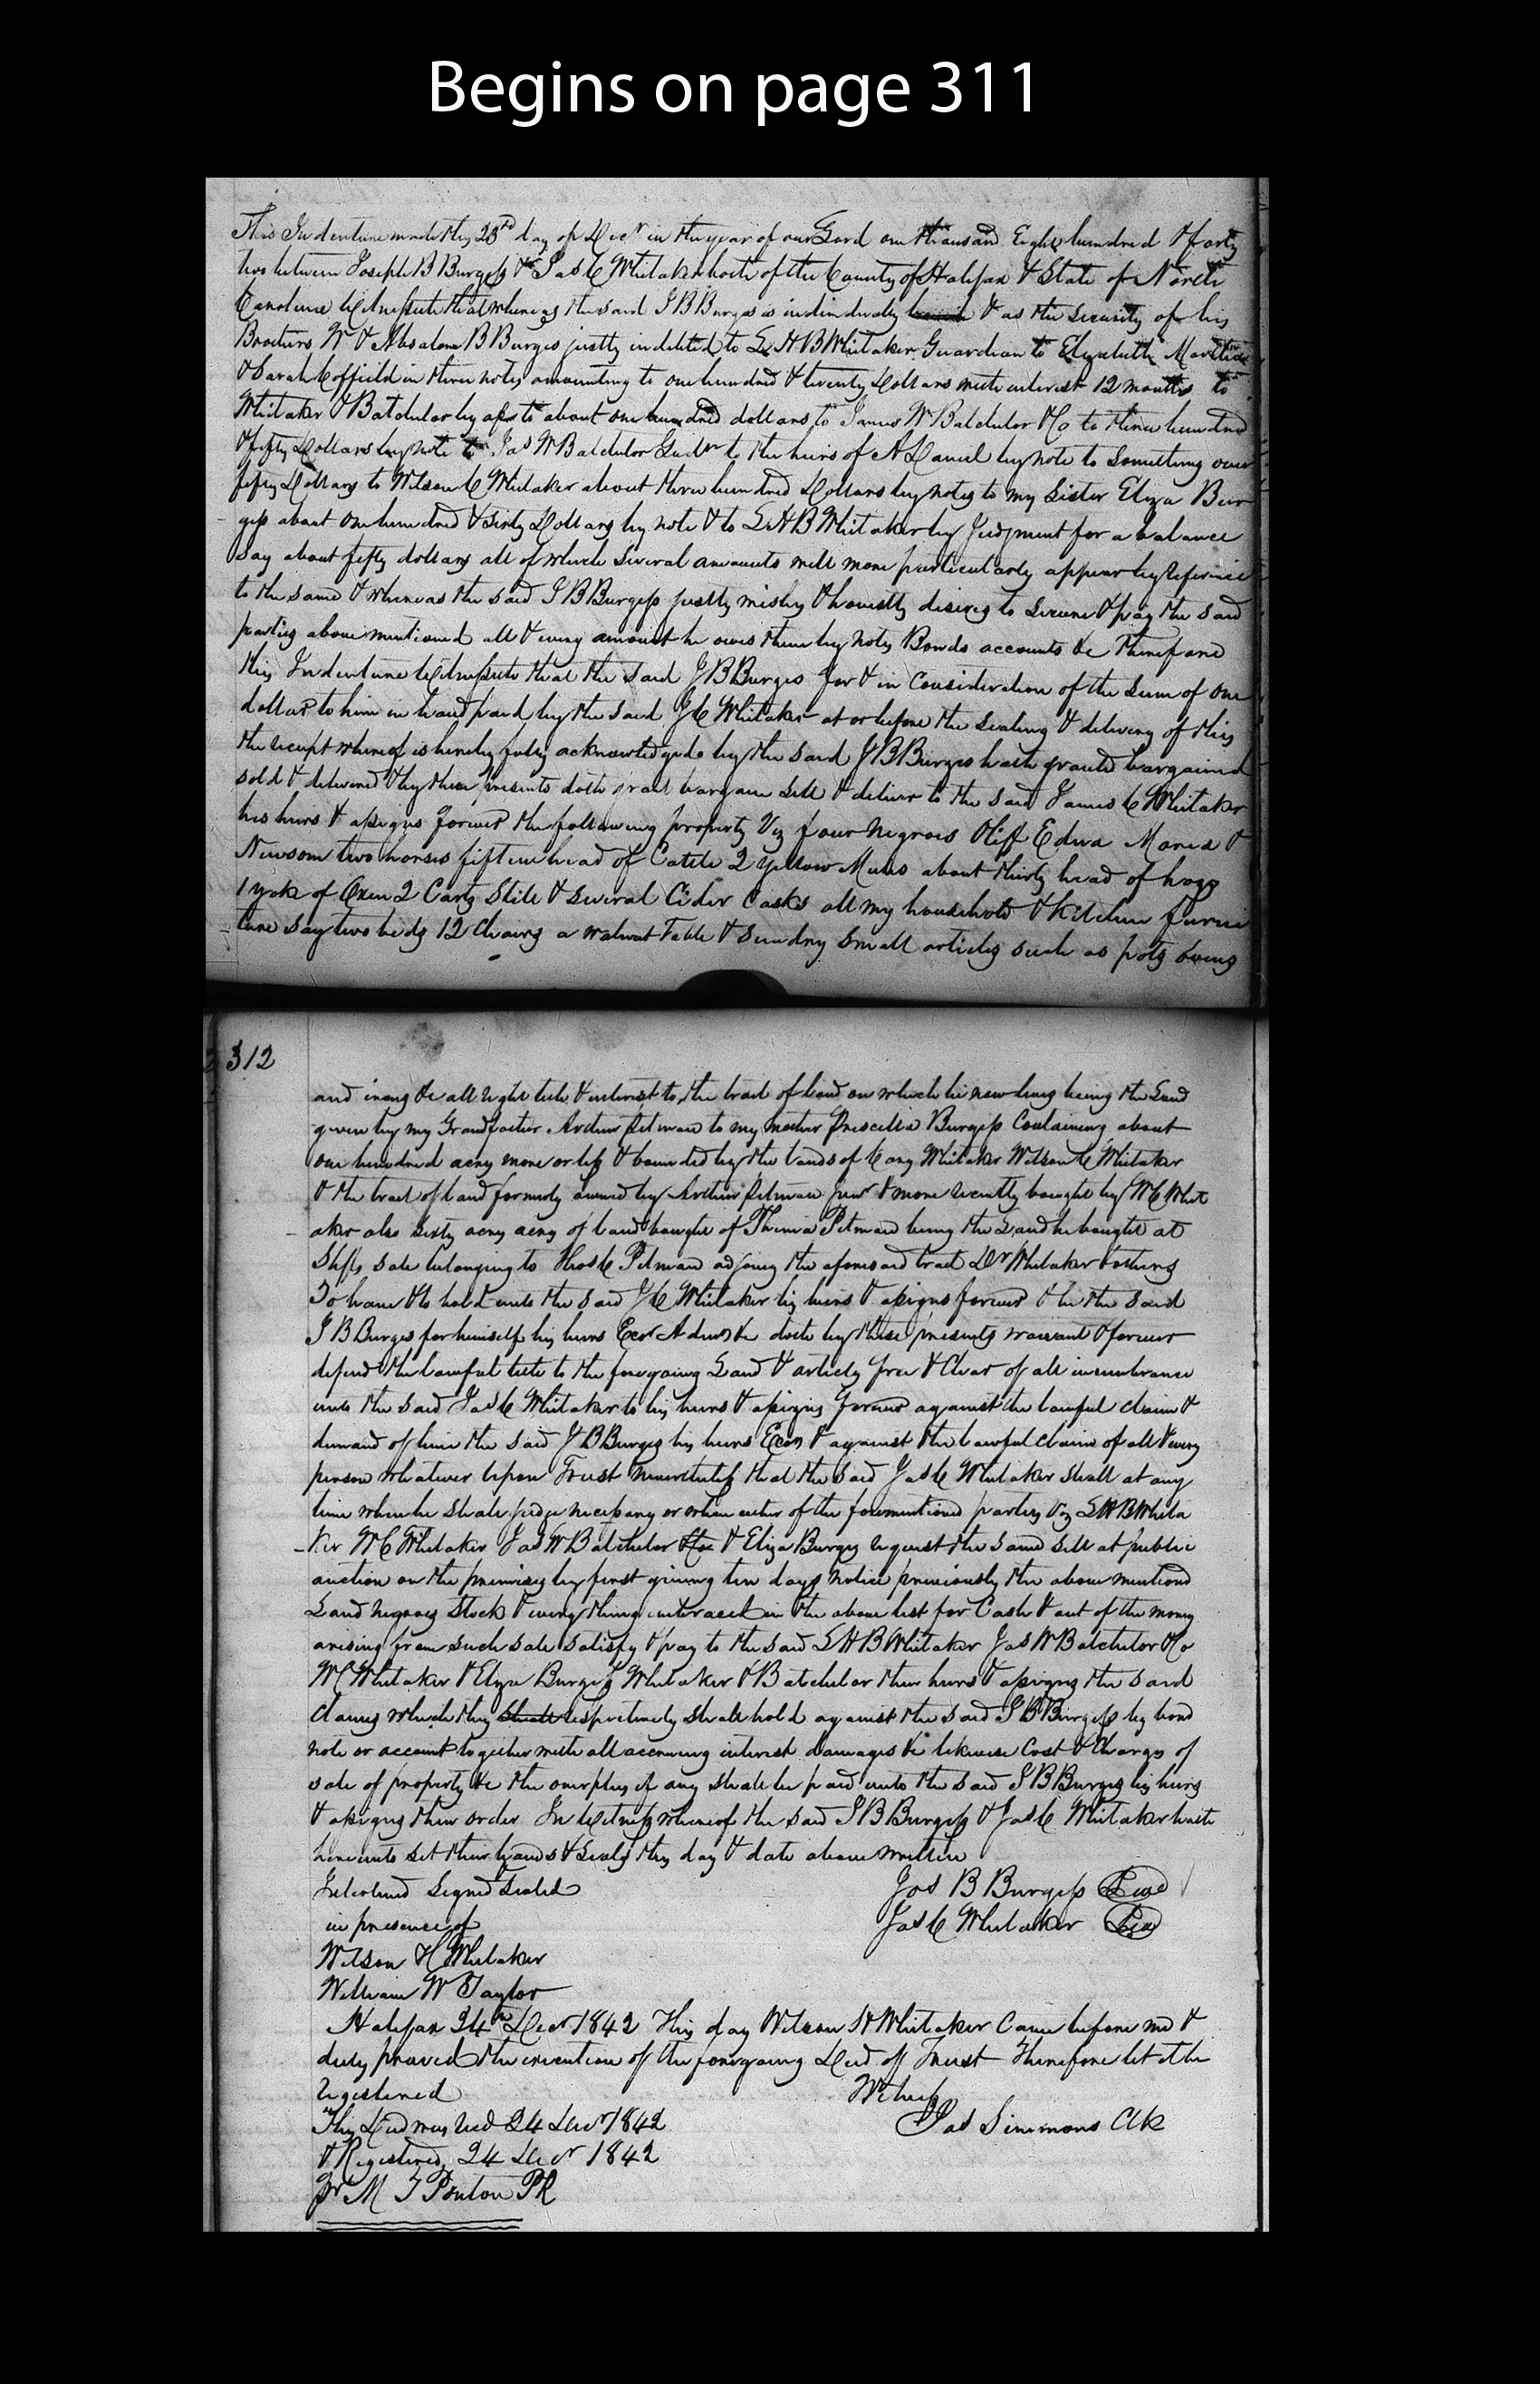 Begins on page 311
This Indenture made this 23rd day of Decr in the year of our Lord one thousand Eight hundred & forty
two between Joseph B Burgess & Jas C Whitaker both of the County of Halifax & State of North
Carolina Witnesseth that whereas the said J B Burges is individually & as the security of his
Brothers W & Absalom B Burges justly indebted to L H B Whitaker Guardian to Elizabeth
& Sarah Coffield in three notes amounting to one hundred & twenty Dollars with interest 12 months to
Whitaker & Batchelor by to about one hundred dollars to James W Batchelor & Co to three hundred
& fifty Dollars by note to Jas W Batchelor Gudn to the heirs of A Daniel by note to something over
fifty Dollars to Wilson C Whitaker about three hundred Dollars by notes to my Sister Eliza Bur
gess about one hundred & sixty Dollars by note & to L H B Whitaker by Judgment for a balance
say about fifty dollars all of which several amounts will more particularly appear by reference
to the same & whereas the said J B Burgess justly wishes & honestly desires to secure & pay the said
parties above mentioned all & every amount he owes them by notes Bonds accounts &c Therefore
this Indenture Witnesseth that the said J B Burges for & in consideration of the sum of one
dollar to him in hand paid by the said J C Whitaker at or before the sealing & delivery of this
the receipt whereof is hereby fully acknowledged by the said J B Burges hath granted bargained
sold & delivered & by these presents doth grant bargain sell & deliver to the said James C Whitaker
his heirs & assigns forever the following property Viz four negroes Oliff Edna Maria &
Newsom two horses fifteen head of Cattle 2 yellow Mules about thirty head of hogs
1 yoke of Oxen 2 Carts Still & several Cider Casks all my household & kitchen furni
ture say two beds 12 chairs a walnut Table & sundry small articles such as pots ovens
312
and &c all right title & interest to the tract of land on which he now lives being the Land
given by my Grandfather Arthur Pitman to my mother Priscilla Burgess Containing about
one hundred acres more or less & bounded by the lands of Cary Whitaker Wilson C Whitaker
& the tract of land formerly owned by Arthur Pitman Junr & more recently bought by W C Whit
aker also sixty acres acres of land bought of Pitman being the Land he bought at
Shffs sale belonging to Thos C Pitman adjoing the aforesaid tract Dr Whitaker & others
To have & to hold unto the said J C Whitaker his heirs & assigns forever & he the said
J B Burges for himself his heirs Exrs Admrs &c doth by these presents warrant & forever
defend the lawful title to the foregoing Land & articles free & Clear of all incumbrance
unto the said Jas C Whitaker to his heirs & assigns forever against the lawful claim &
demand of him the said J B Burges his heirs Exors & against the lawful claim of all & every
person whatever Upon Trust nevertheless that the said Jas C Whitaker shall at any
time when he shall judge necessary or when either of the forementioned parties Viz L H B Whita
ker W C Whitaker Jas W Batchelor & Co & Eliza Burges request the same sell at public
auction on the premises by first giving ten days notice previously the above mentioned
Land negroes stock & every thing in the above list for Cash & out of the money
arising from such sale satisfy & pay to the said L H B Whitaker Jas W Batchelor & Co
W C Whitaker & Eliza Burges Whitaker & Batchelor their heirs & assigns the said
claims which they shall respectively shall hold against the said J B Burgess by bond
note or account together with all accruing interest damages &c likewise Cost & Charges of
sale of property &c the overplus if any shall be paid unto the said J B Burges his heirs
& assigns their order In Witness whereof the said J B Burgess & Jas C Whitaker hath
hereunto set their hands & seals this day & date above written
Interlined Signed Sealed
Jos B Burgess Seal
in presence of
Jas C Whitaker Seal
Wilson H Whitaker
William W Taylor
Halifax 24th Decr 1842 This day Wilson H Whitaker Came before me &
duly proved the execution of the foregoing Deed of Trust Therefore let it be
registered
Witness
This Deed was recd 24 Decr 1842
Jas Simmons Clk
& Registered 24 Decr 1842
Pr M T Ponton PR